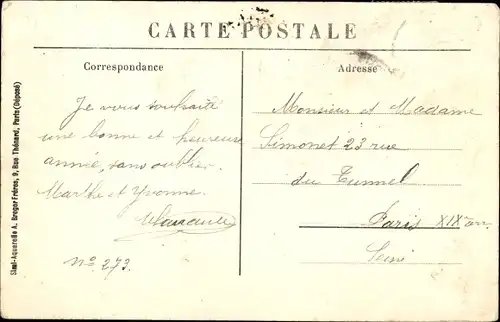 CARTE POSTALE
Correspondance
Je vous souhaite
une bonne et heureuse
année, sans oublier
Marthe et Yvonne.
N° 273.
Adresse
Monsieur et Madame
Simonet 23 rue
du Tunnel
Paris XIXe arr.
Seine
Simi-Aquarelle A. Breger Frères, 9, Rue Thénard, Paris (Déposé)